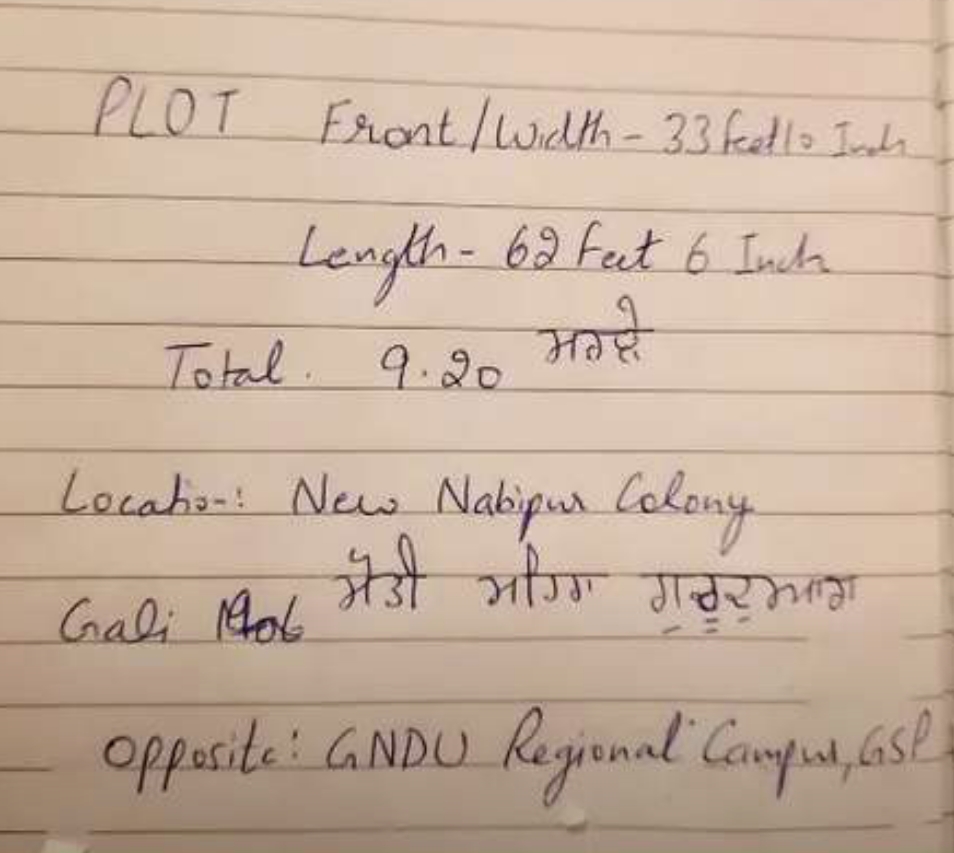 PLOT Front/Width - 33 feet 10 Inch
Length - 62 Feet 6 Inch
Total. 9.20 ਮਰਲੇ
Location: New Nabipur Colony
Gali
Opposite: GNDU Regional Campus, GSP